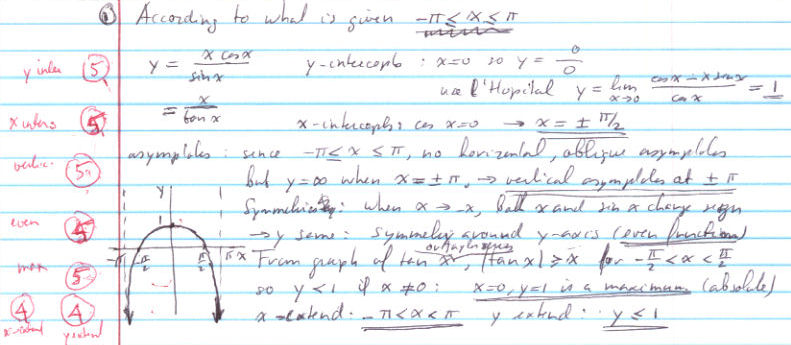 ① According to what is given -π ≤ x ≤ π
y = x cos x / sin x y-intercepts : x=0 so y = 0/0
y inters ⑤
use l'Hopital y = lim x→0 cos x - x sin x / cos x = 1
= x / tan x
x inters ⑤ x-intercepts: cos x=0 → x = ± π/2
asymptotes : since -π ≤ x ≤ π, no horizontal, oblique asymptotes
vertic. ⑤ but y=∞ when x=±π, → vertical asymptotes at ±π
Symmetries: when x → -x, both x and sin x change sign
even ⑤ → y same: symmetric around y-axis (even function)
From graph of tan x, |tan x| ≥ x for -π/2 < x < π/2
max ⑤ so y < 1 if x ≠ 0 : x=0, y=1 is a maximum (absolute)
④ ④ x-extend: -π < x < π y extend: y ≤ 1
x-extend y extend
y
1
-π -π/2 π/2 π x